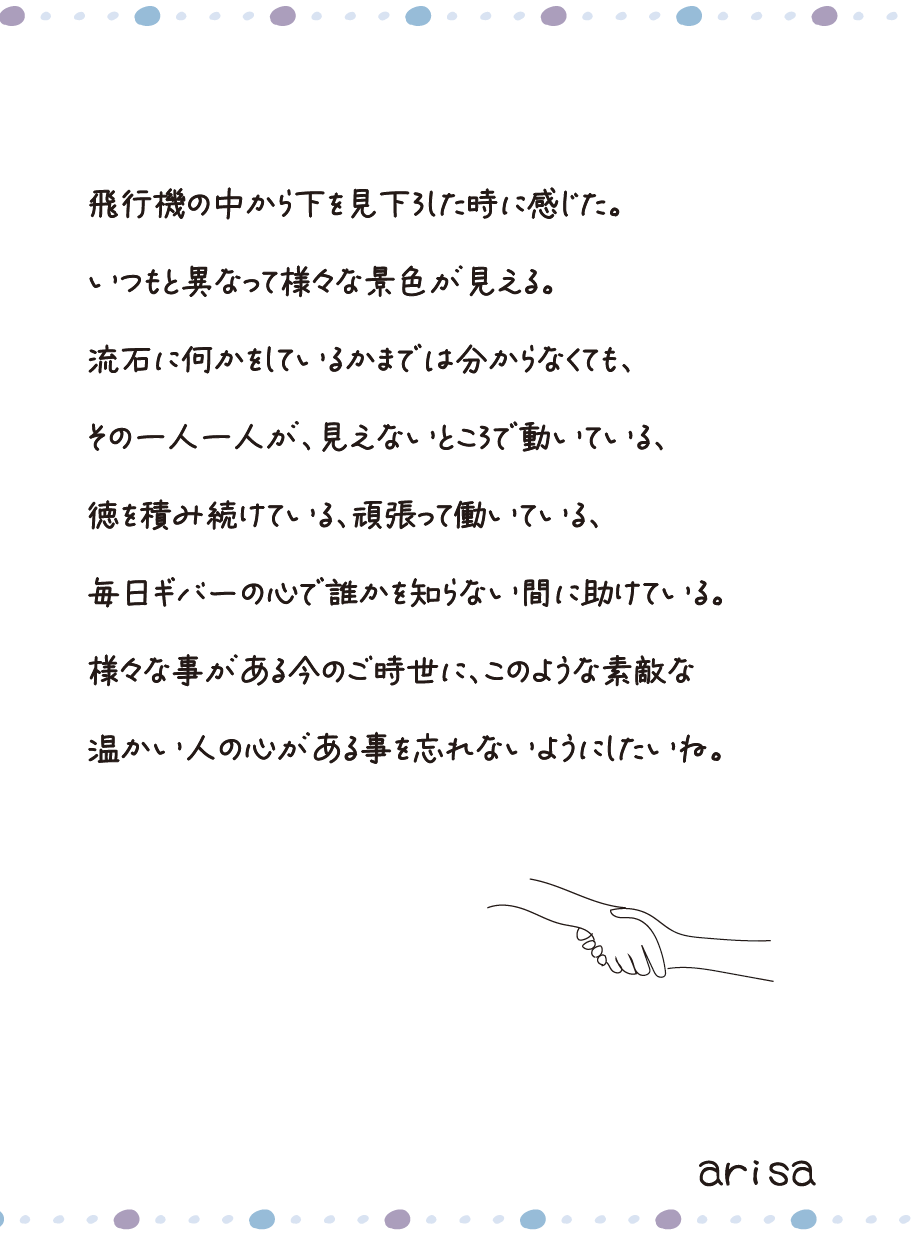 飛行機の中から下を見下ろした時に感じた。
いつもと異なって様々な景色が見える。
流石に何かをしているかまでは分からなくても、
その一人一人が、見えないところで動いている、
徳を積み続けている、頑張って働いている、
毎日ギバーの心で誰かを知らない間に助けている。
様々な事がある今のご時世に、このような素敵な
温かい人の心がある事を忘れないようにしたいね。
arisa